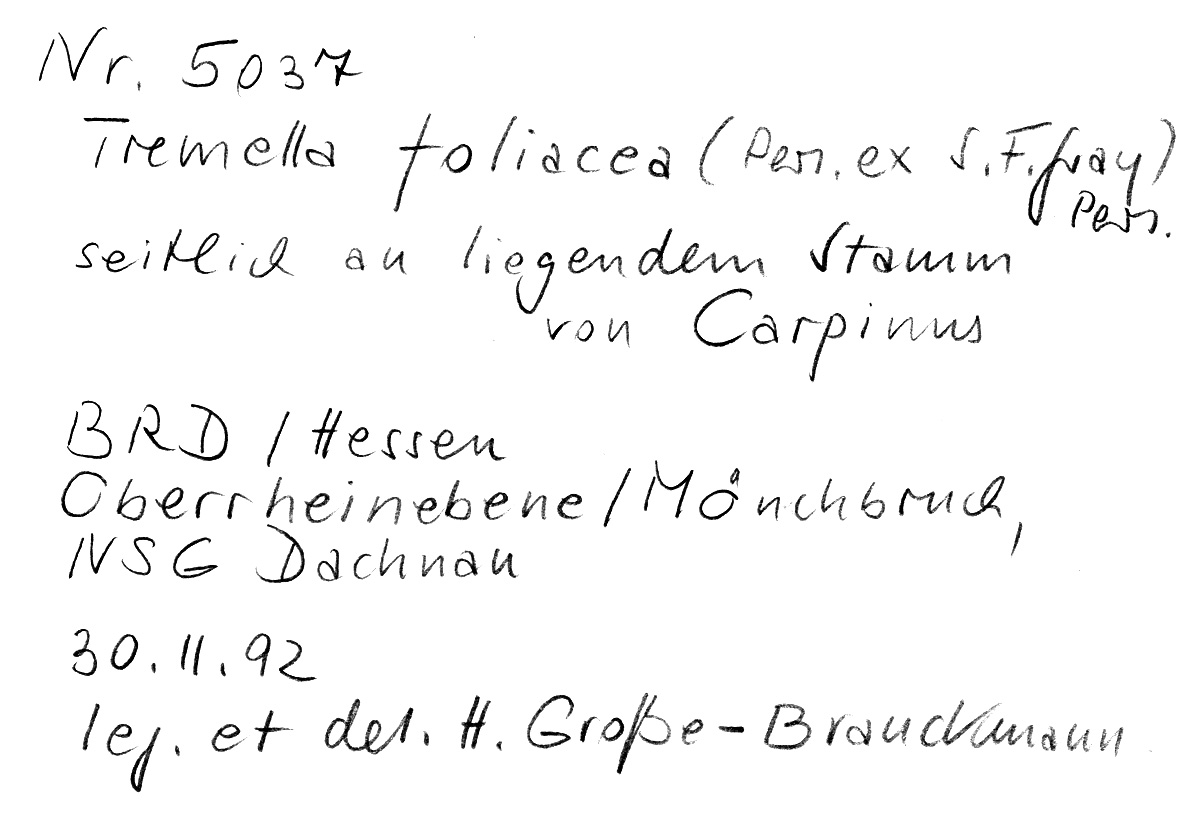 Nr. 5037
Tremella foliacea (Pers. ex S.F. Gray)
Pers.
seitlich an liegendem Stamm
von Carpinus
BRD / Hessen
Oberrheinebene / Mönchbruch,
NSG Dachnau
30.11.92
leg. et det. H. Große-Brauckmann